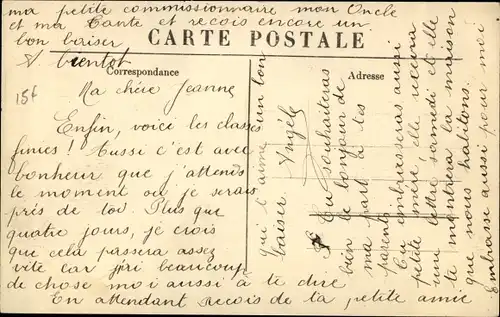 CARTE POSTALE
Correspondance
Adresse
15f
Ma chère Jeanne
Enfin, voici les classes
finies ! Aussi c'est avec
bonheur que j'attends
le moment où je serais
près de toi. Plus que
quatre jours, je crois
que cela passera assez
vite car j'ai beaucoup
de chose moi aussi à te dire
En attendant recois de ta petite amie
qui t'aime un bon
baiser Angèle
Tu souhaiteras
bien le bonjour de
ma part à tes
parents
Tu embrasseras aussi
petite mère, elle recevra
une lettre samedi et elle
te montrera la maison
que nous habitons.
Embrasse aussi pour moi
ma petite commissionnaire mon Oncle
et ma Tante et recois encore un
bon baiser
A bientot